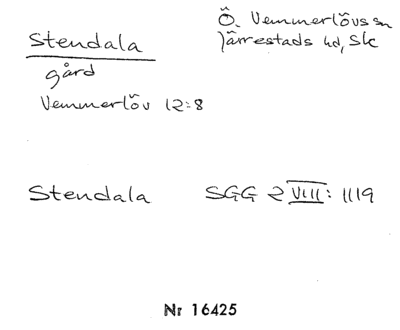 Stendala
gård
Vemmerlöv 12:8
Ö. Vemmerlövs sn
Järrestads hd, Sk
Stendala SGG 2 VIII: 1119
Nr 16425